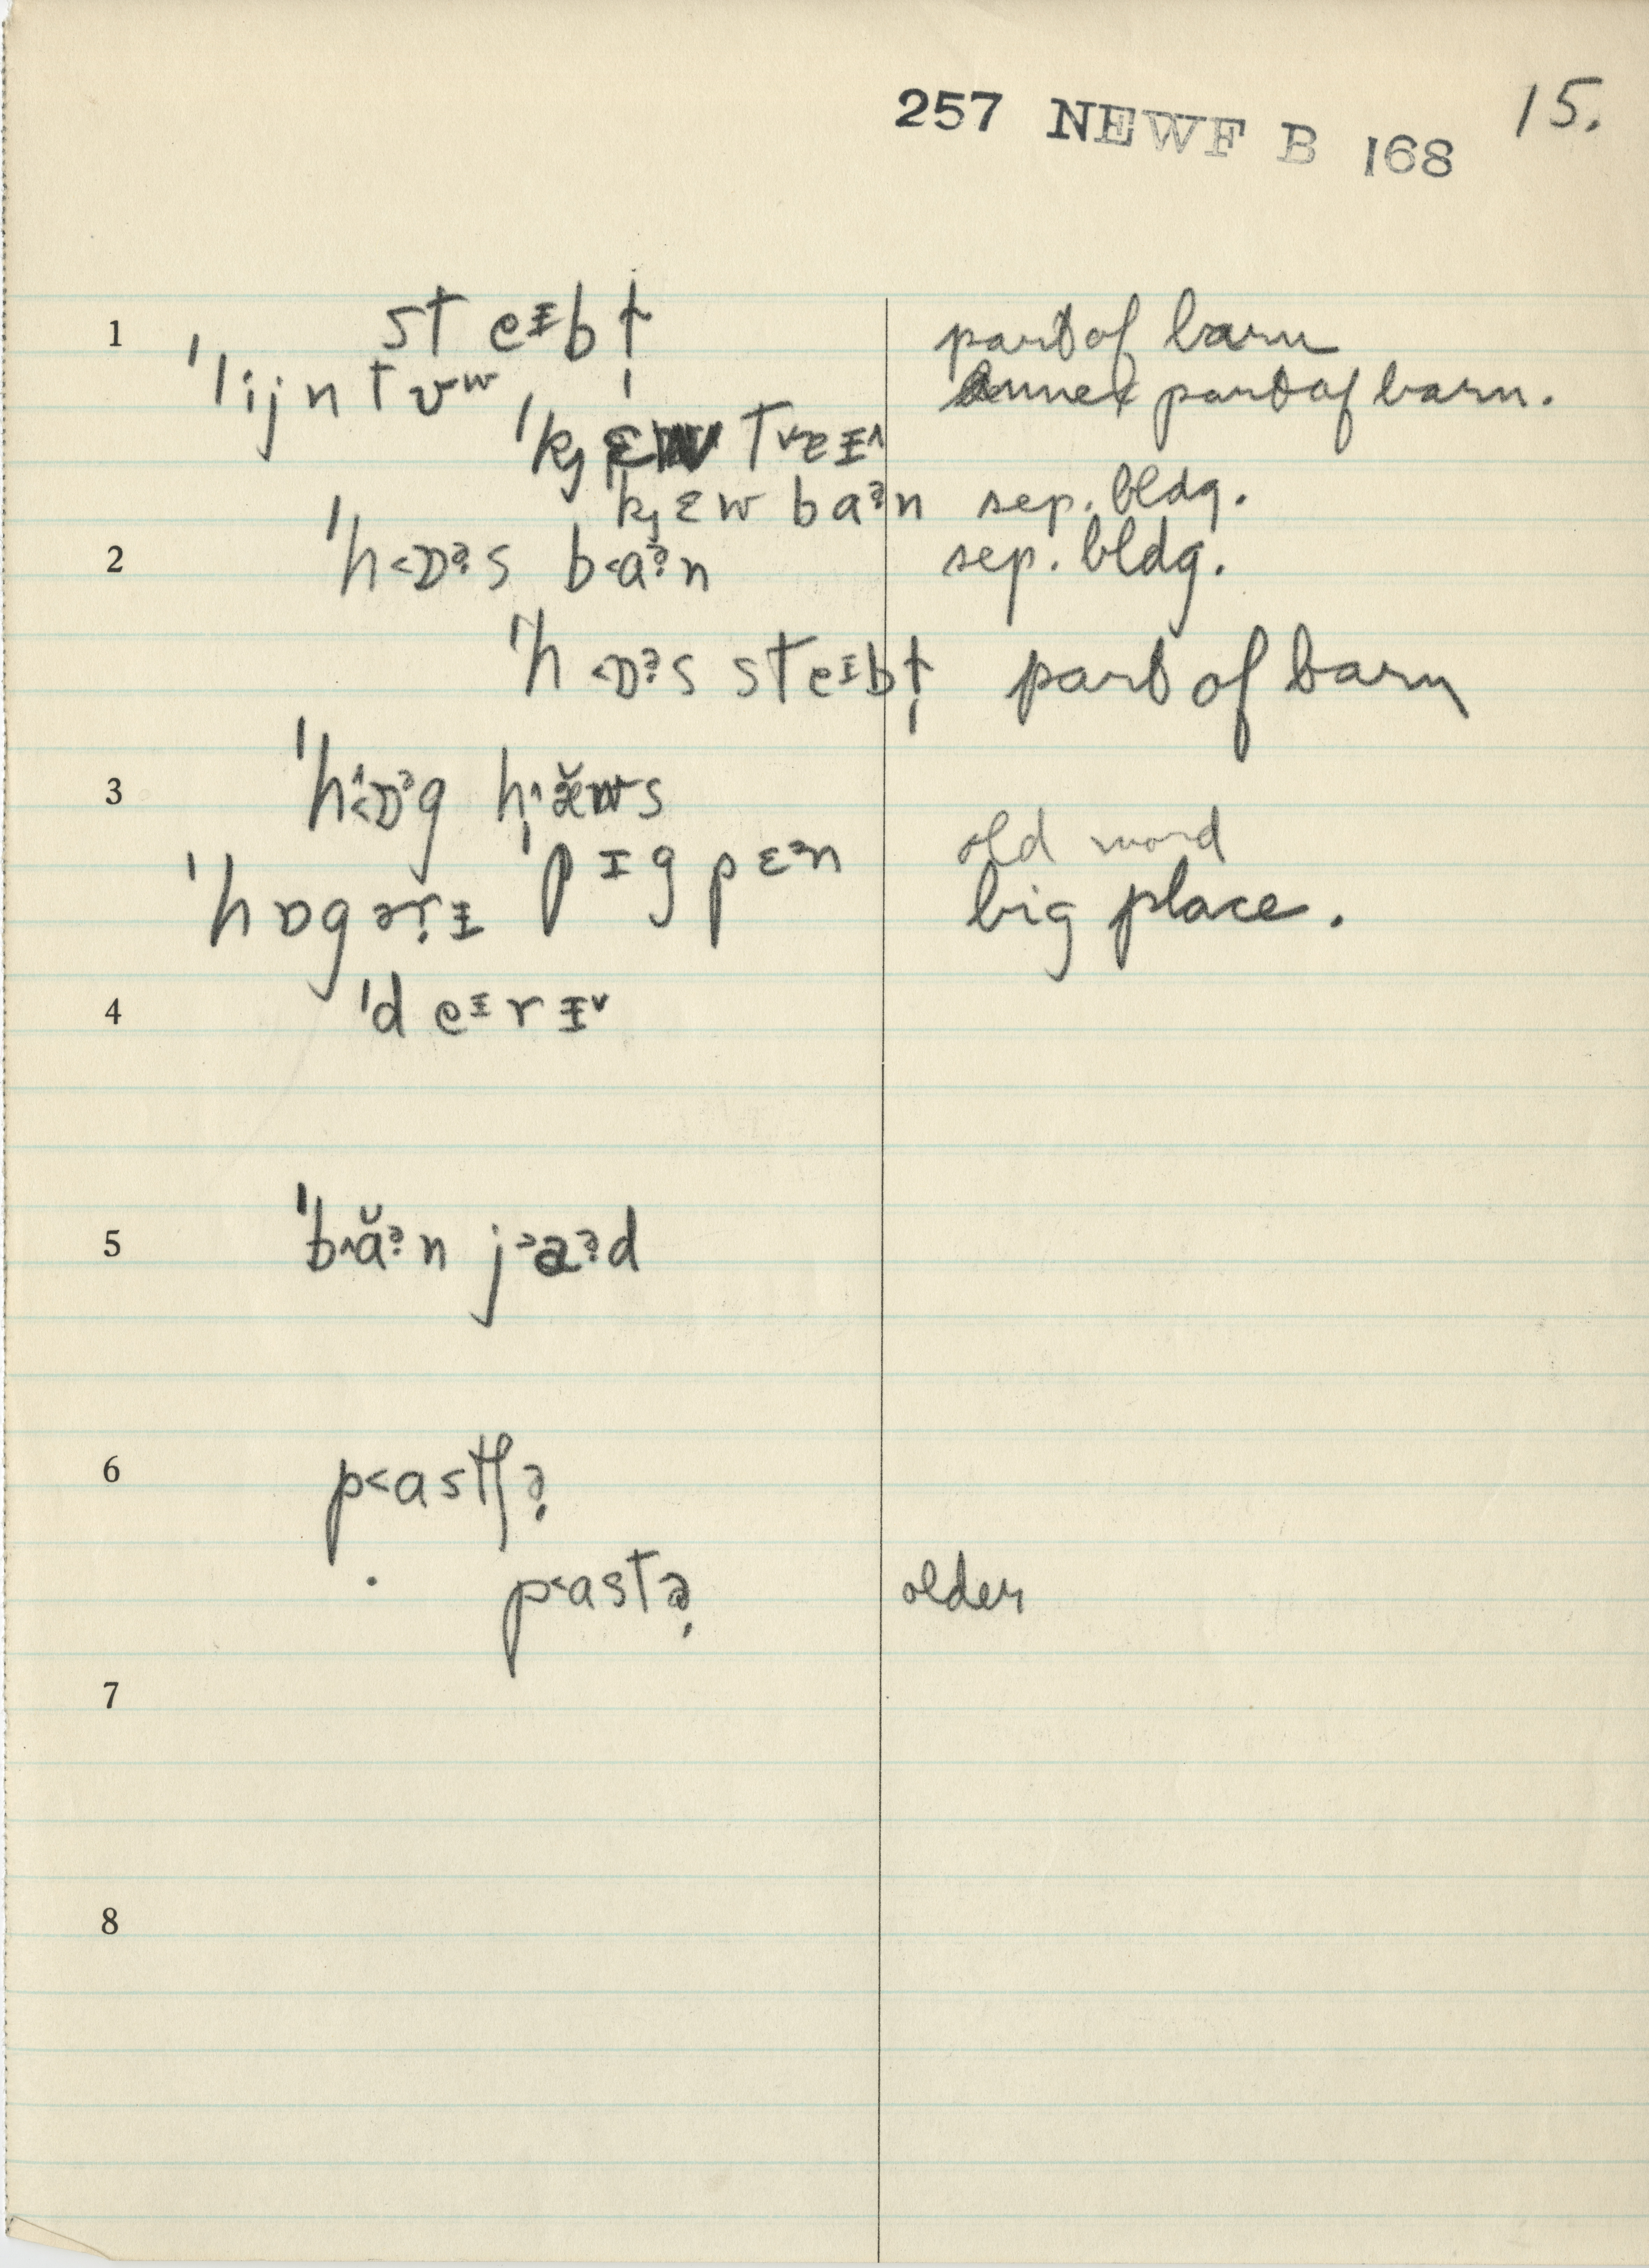 257 NEWF B 168 15.
1 steɪbɫ̩ part of barn
ˈlijntʊʷ annex part of barn.
kjɛw baᵊn sep. bldg.
2 ˈh˂ɒᵊs b˂aᵊn sep. bldg.
ˈh˂ɒᵊs steɪbɫ̩ part of barn
3 ˈhɒᵊg hæ̆ʊs
ˈpɪg pɛᵊn old word
ˈhɒgəɾɪ big place.
4 ˈdeᶦrɪ˅
5 ˈb˄ăᵊn jaᵊd
6 p˂astʃə̣
p˂astə̣ older
7
8